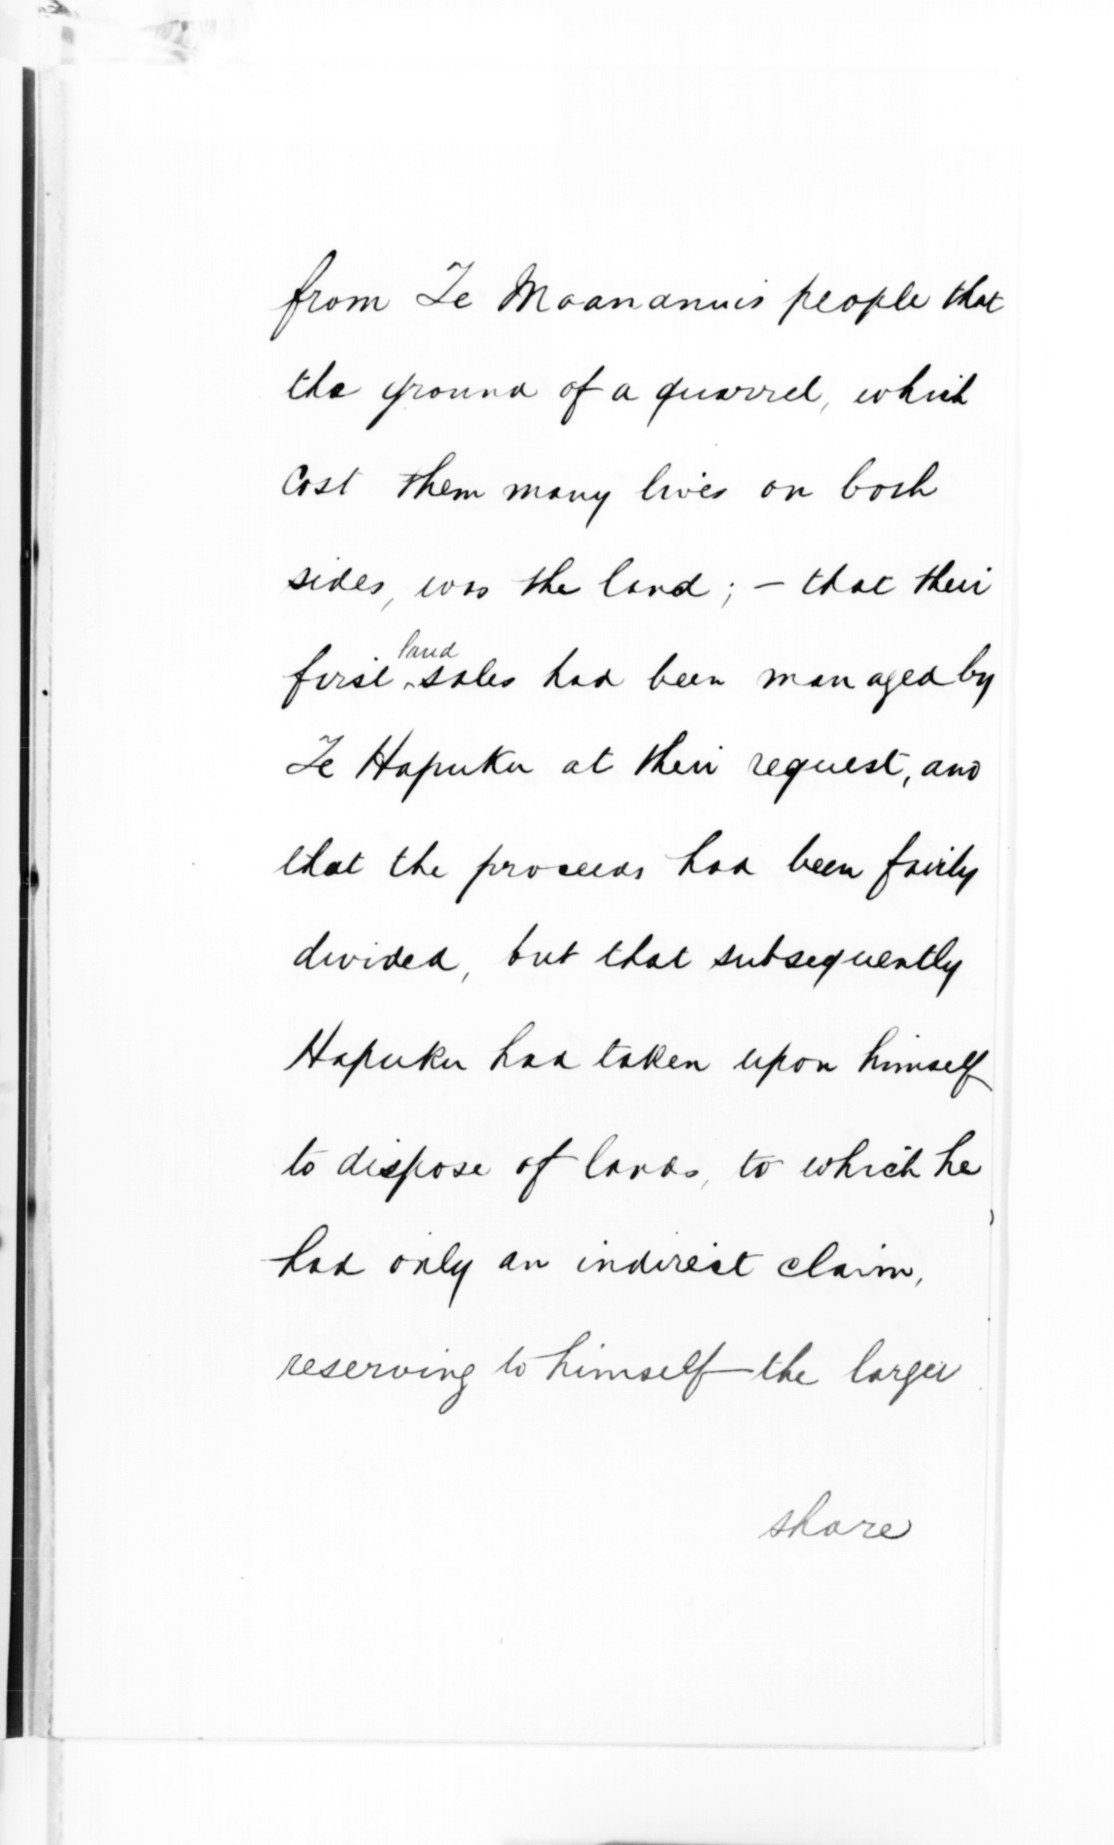 from Te Moananuis people that
the ground of a quarrel, which
cost them many lives on both
sides, was the land; – that their
first land sales had been managed by
Te Hapuku at their request, and
that the proceeds had been fairly
divided, but that subsequently
Hapuku had taken upon himself
to dispose of lands, to which he
had only an indirect claim,
reserving to himself the larger
share